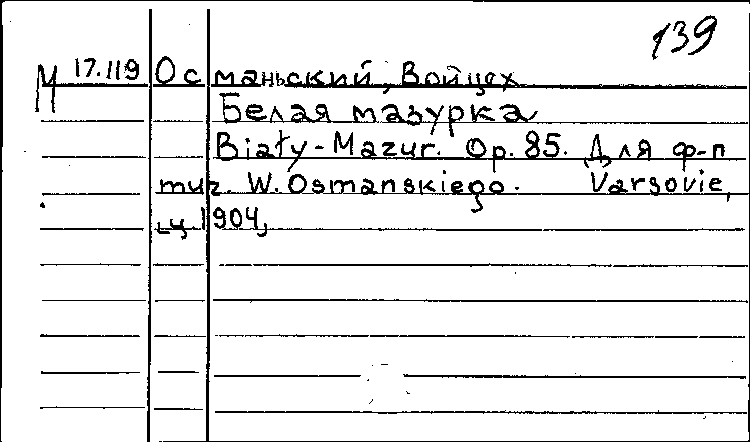 139
М 17.119 Османьский, Войцех
Белая мазурка
Biały-Mazur. Op. 85. Для ф-п
muz. W. Osmanskiego. Varsovie,
ц. 1904,